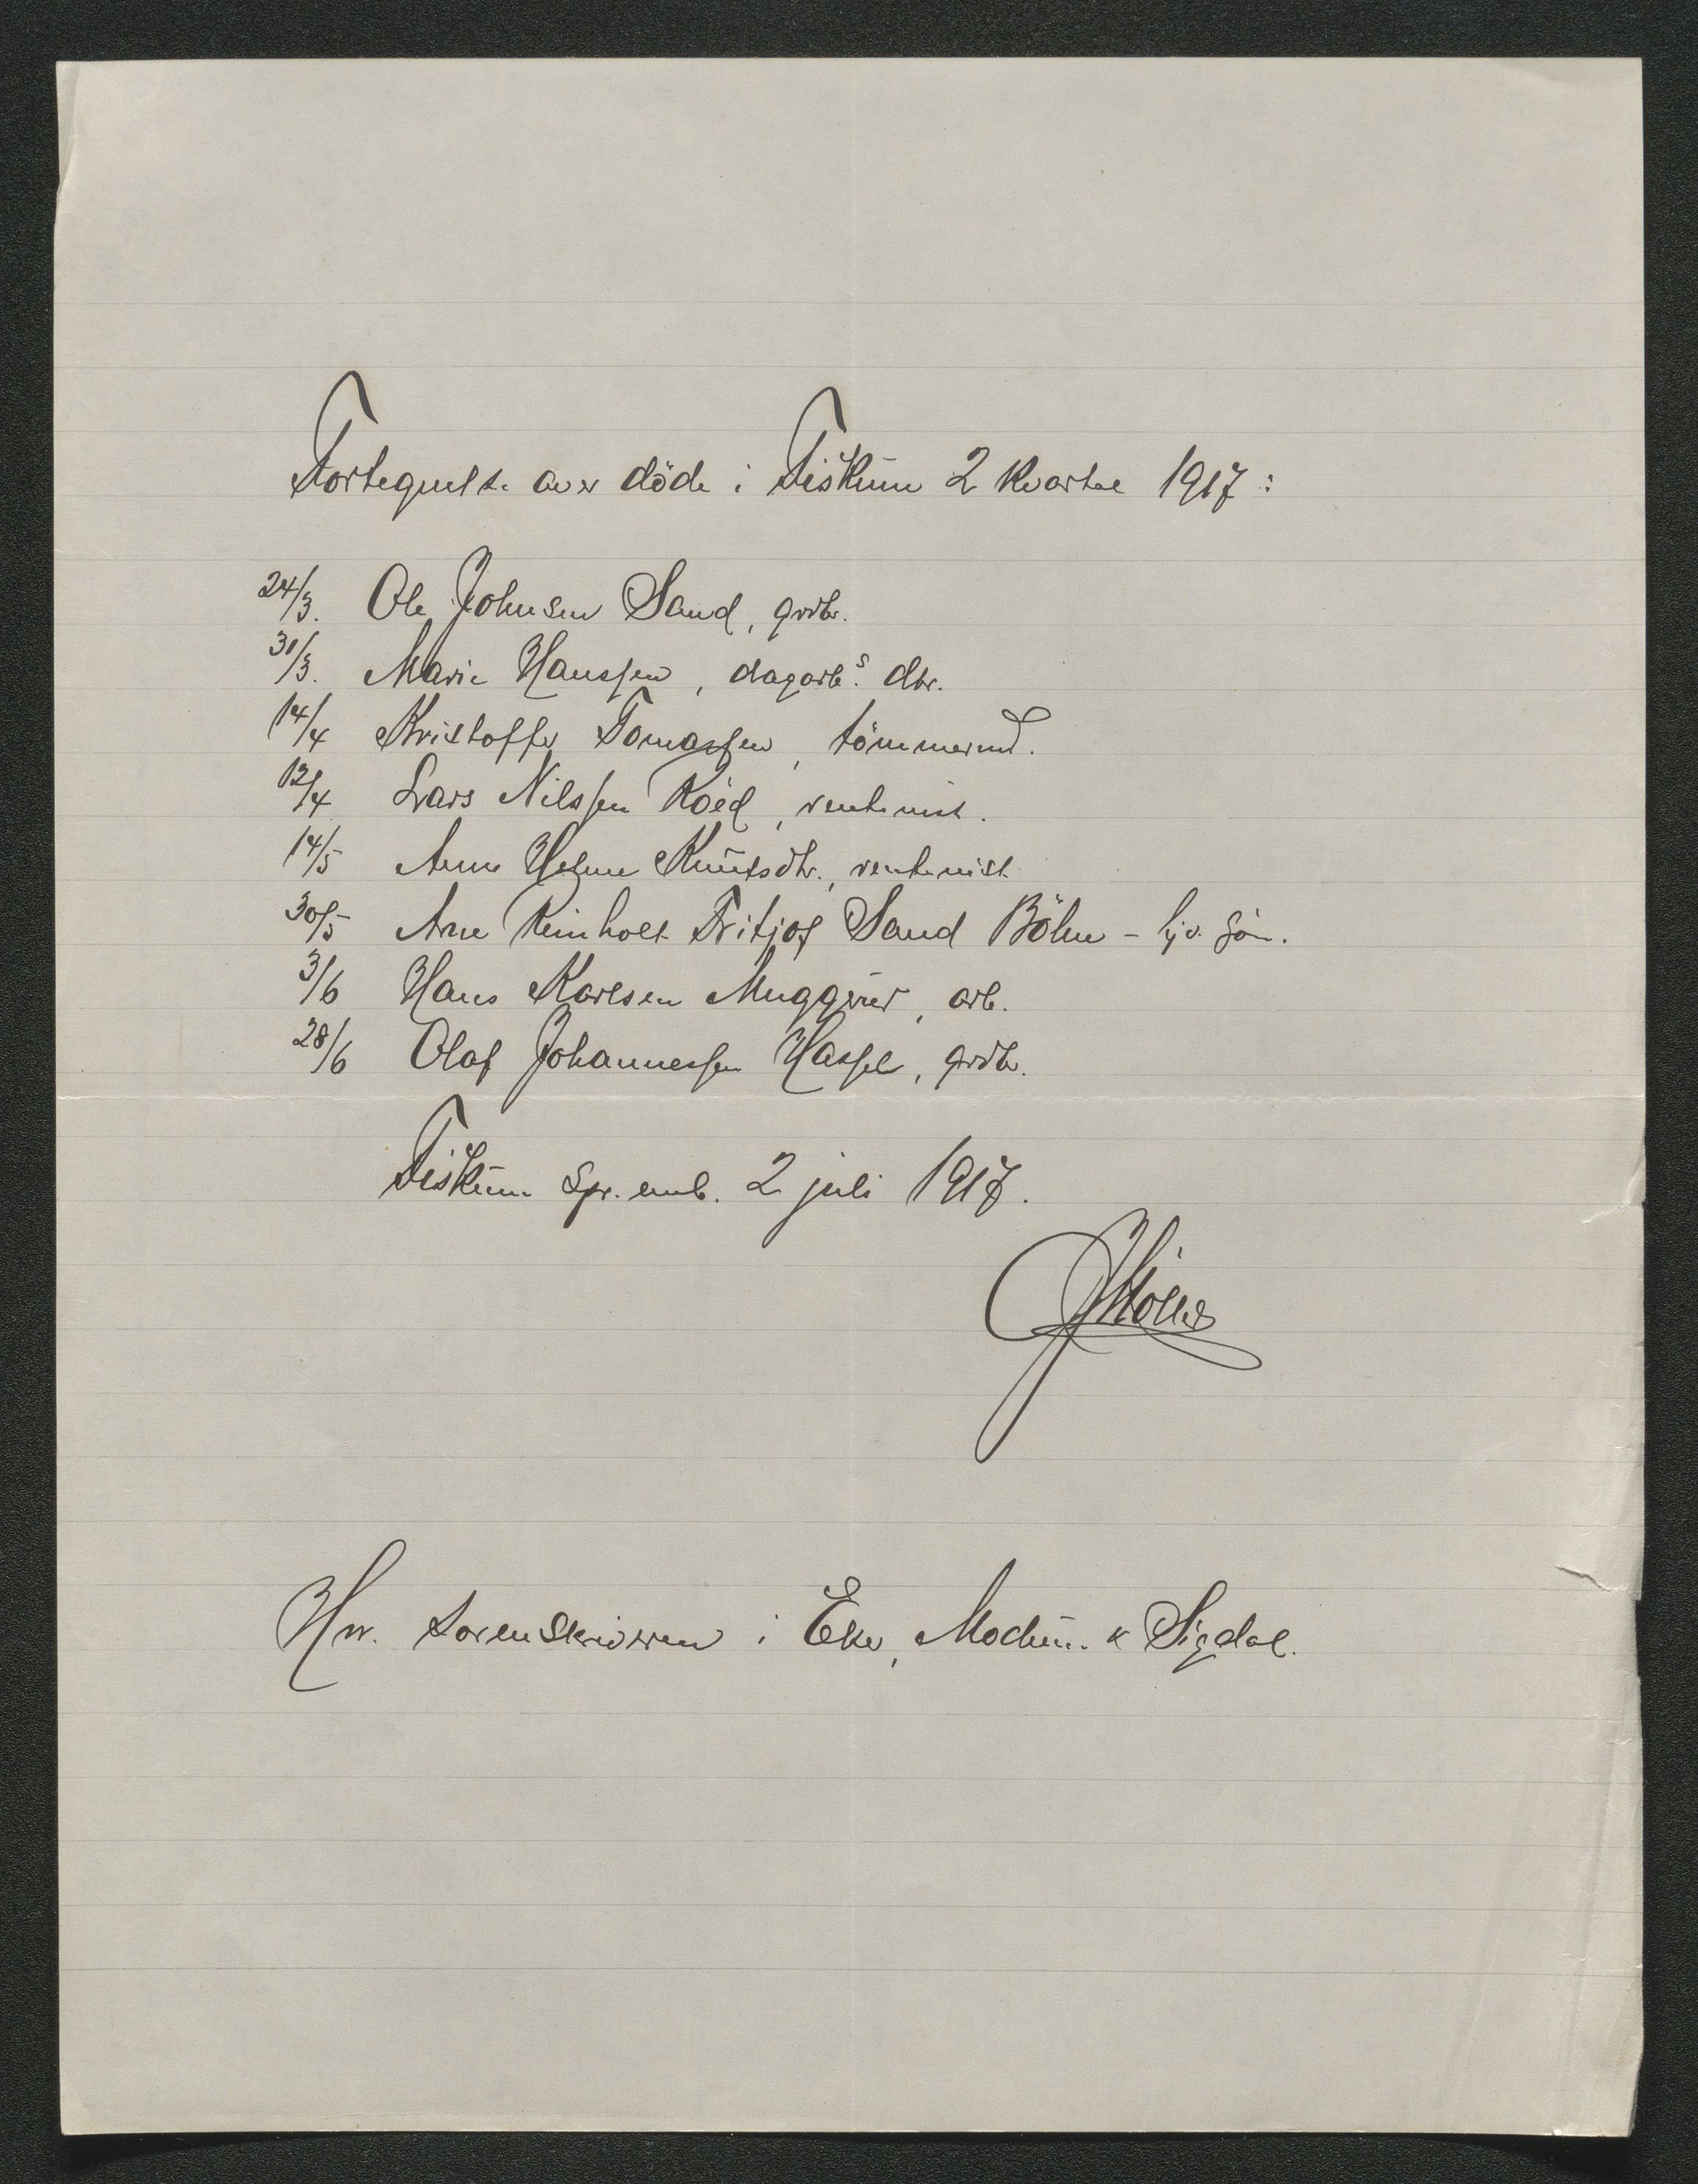 Fortegnelse over döde i Fiskum 2 kvartal 1917:
24/3. Ole Johnsen Sand, grdbr.
31/3. Marie Hanssen, dagarb.s dtr.
14/4 Kristoffer Tomassen, tömmermd.
12/4 Lars Nilssen Röed, rentenist.
14/5 Anne Helene Knutsdtr., rentenist
30/5 Arne Reinholt Fritjof Sand Böhn - hjv. sön.
3/6 Hans Karlsen Muggerud, arb.
28/6 Olaf Johannessen Hassel, grdbr.
Fiskum spr. emb. 2 juli 1917.
Möller
Hrr. sorenskriveren i Eker, Modum & Sigdal.